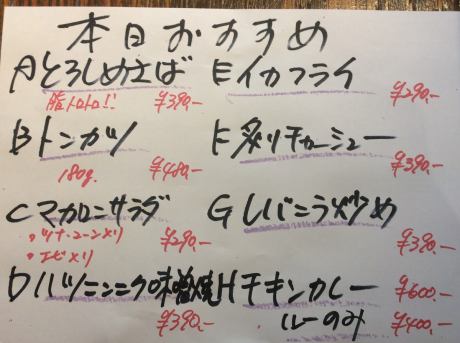 本日おすすめ
Aとろしめさば ¥390.-
脂トロトロ!!
Bトンカツ ¥480.-
180g.
Cマカロニサラダ ¥290.-
・ツナ・コーン入り
・エビ入り
Dハツニンニク味噌焼 ¥390.-
Eイカフライ ¥290.-
F炙りチャーシュー ¥390.-
Gレバニラ炒め ¥390.-
Hチキンカレー ¥600.-
ルーのみ ¥400.-